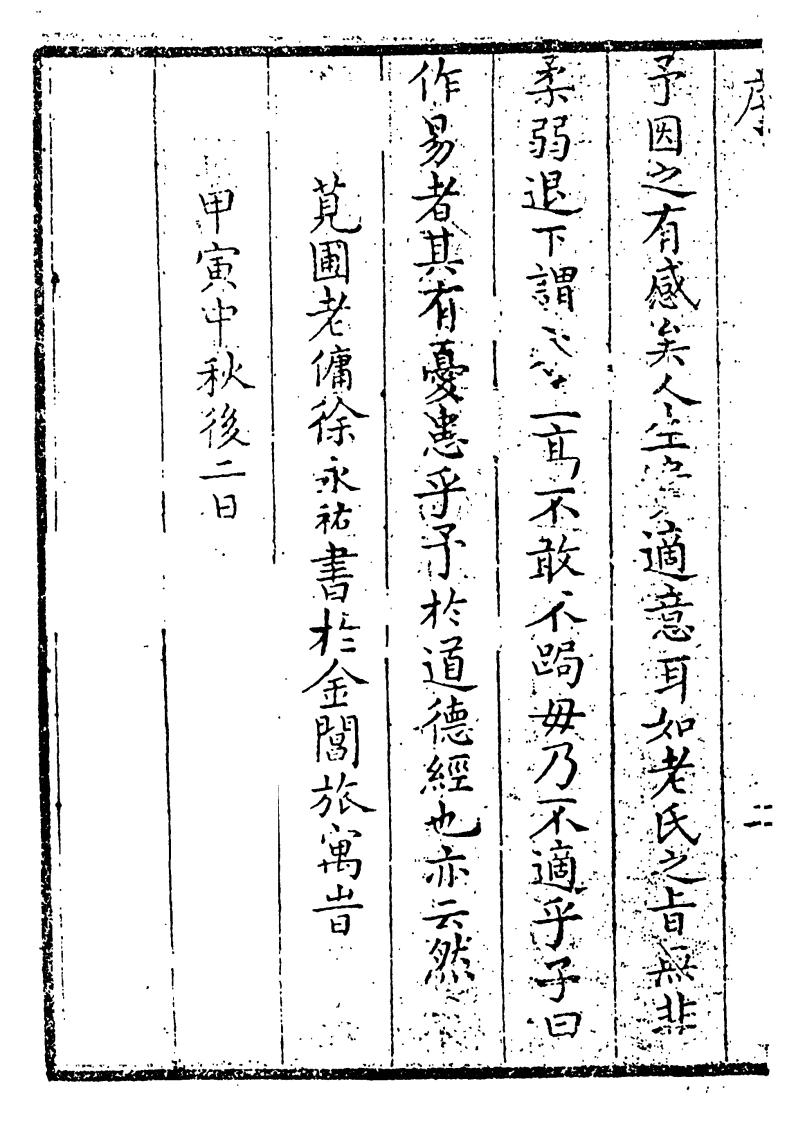 序 二
予因之有感矣人生適意耳如老氏之旨無非
柔弱退下謂高不敢不跼毋乃不適乎子曰
作易者其有憂患乎予於道德經也亦云然
莧圃老傭徐永祐書於金閶旅寓旹
甲寅中秋後二日